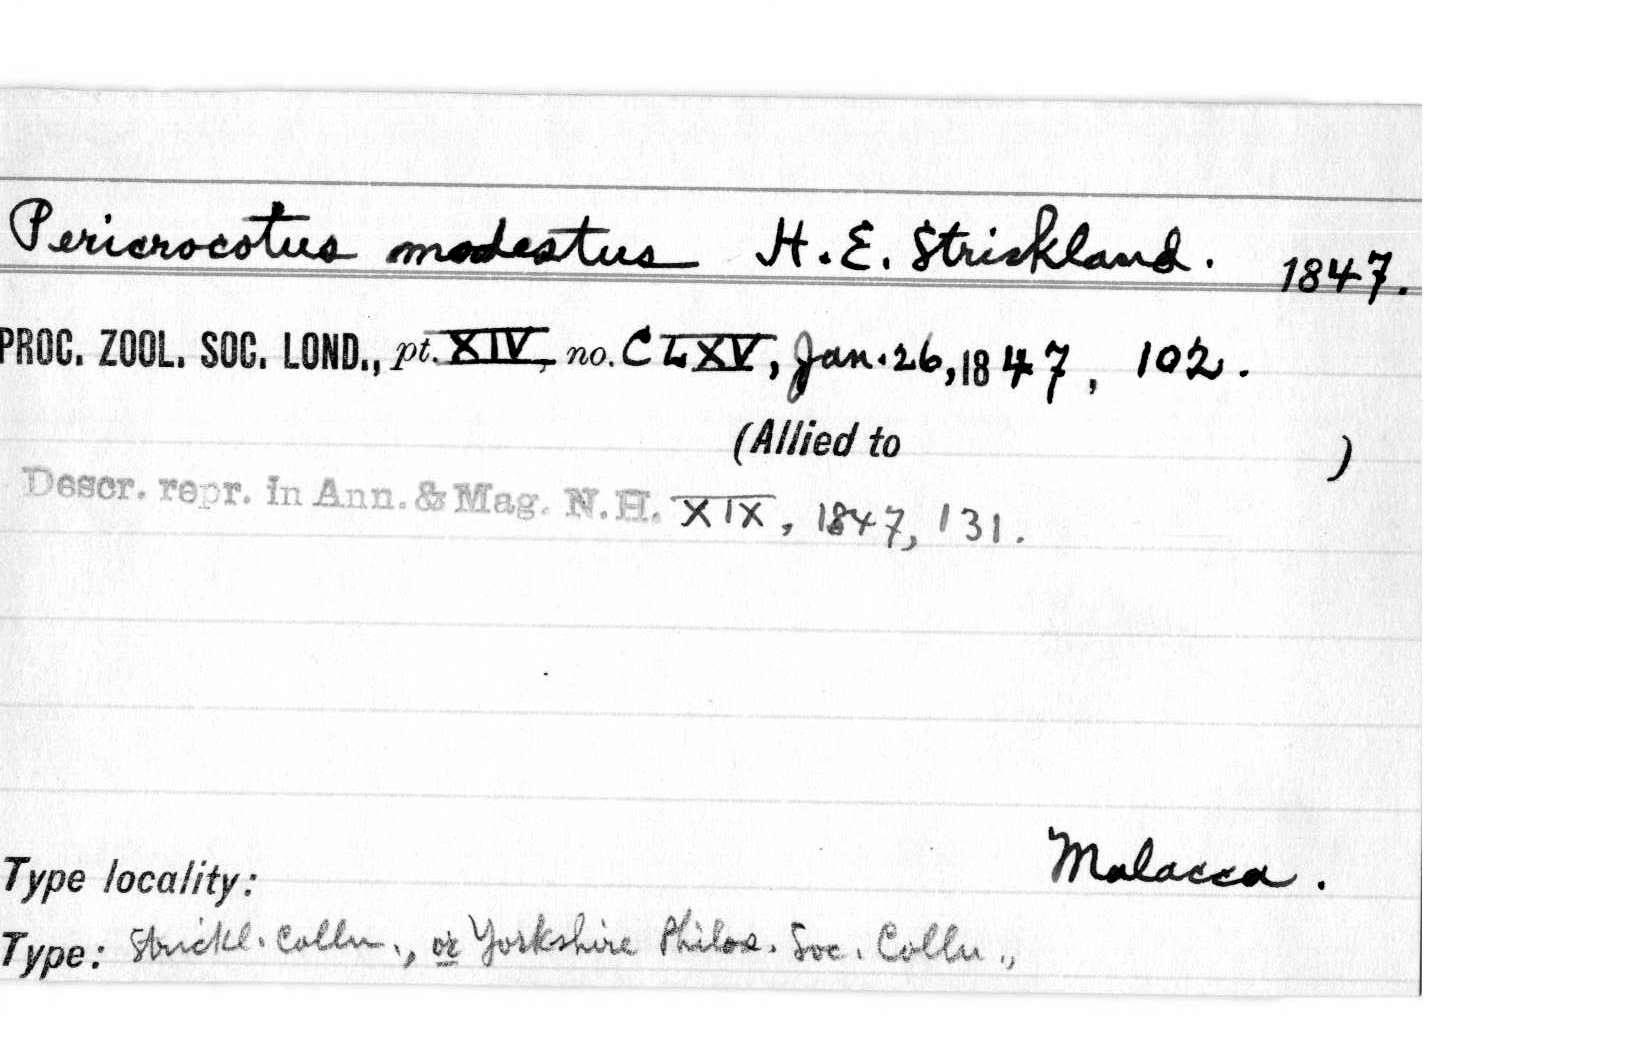 Pericrocotus modestus H. E. Strickland. 1847.
PROC. ZOOL. SOC. LOND., pt. XIV, no. CLXV, Jan. 26, 1847, 102.
(Allied to )
Descr. repr. in Ann. & Mag. N.H. XIX, 1847, 131.
Type locality: Malacca.
Type: Strickl. Colln., or Yorkshire Philos. Soc. Colln.,